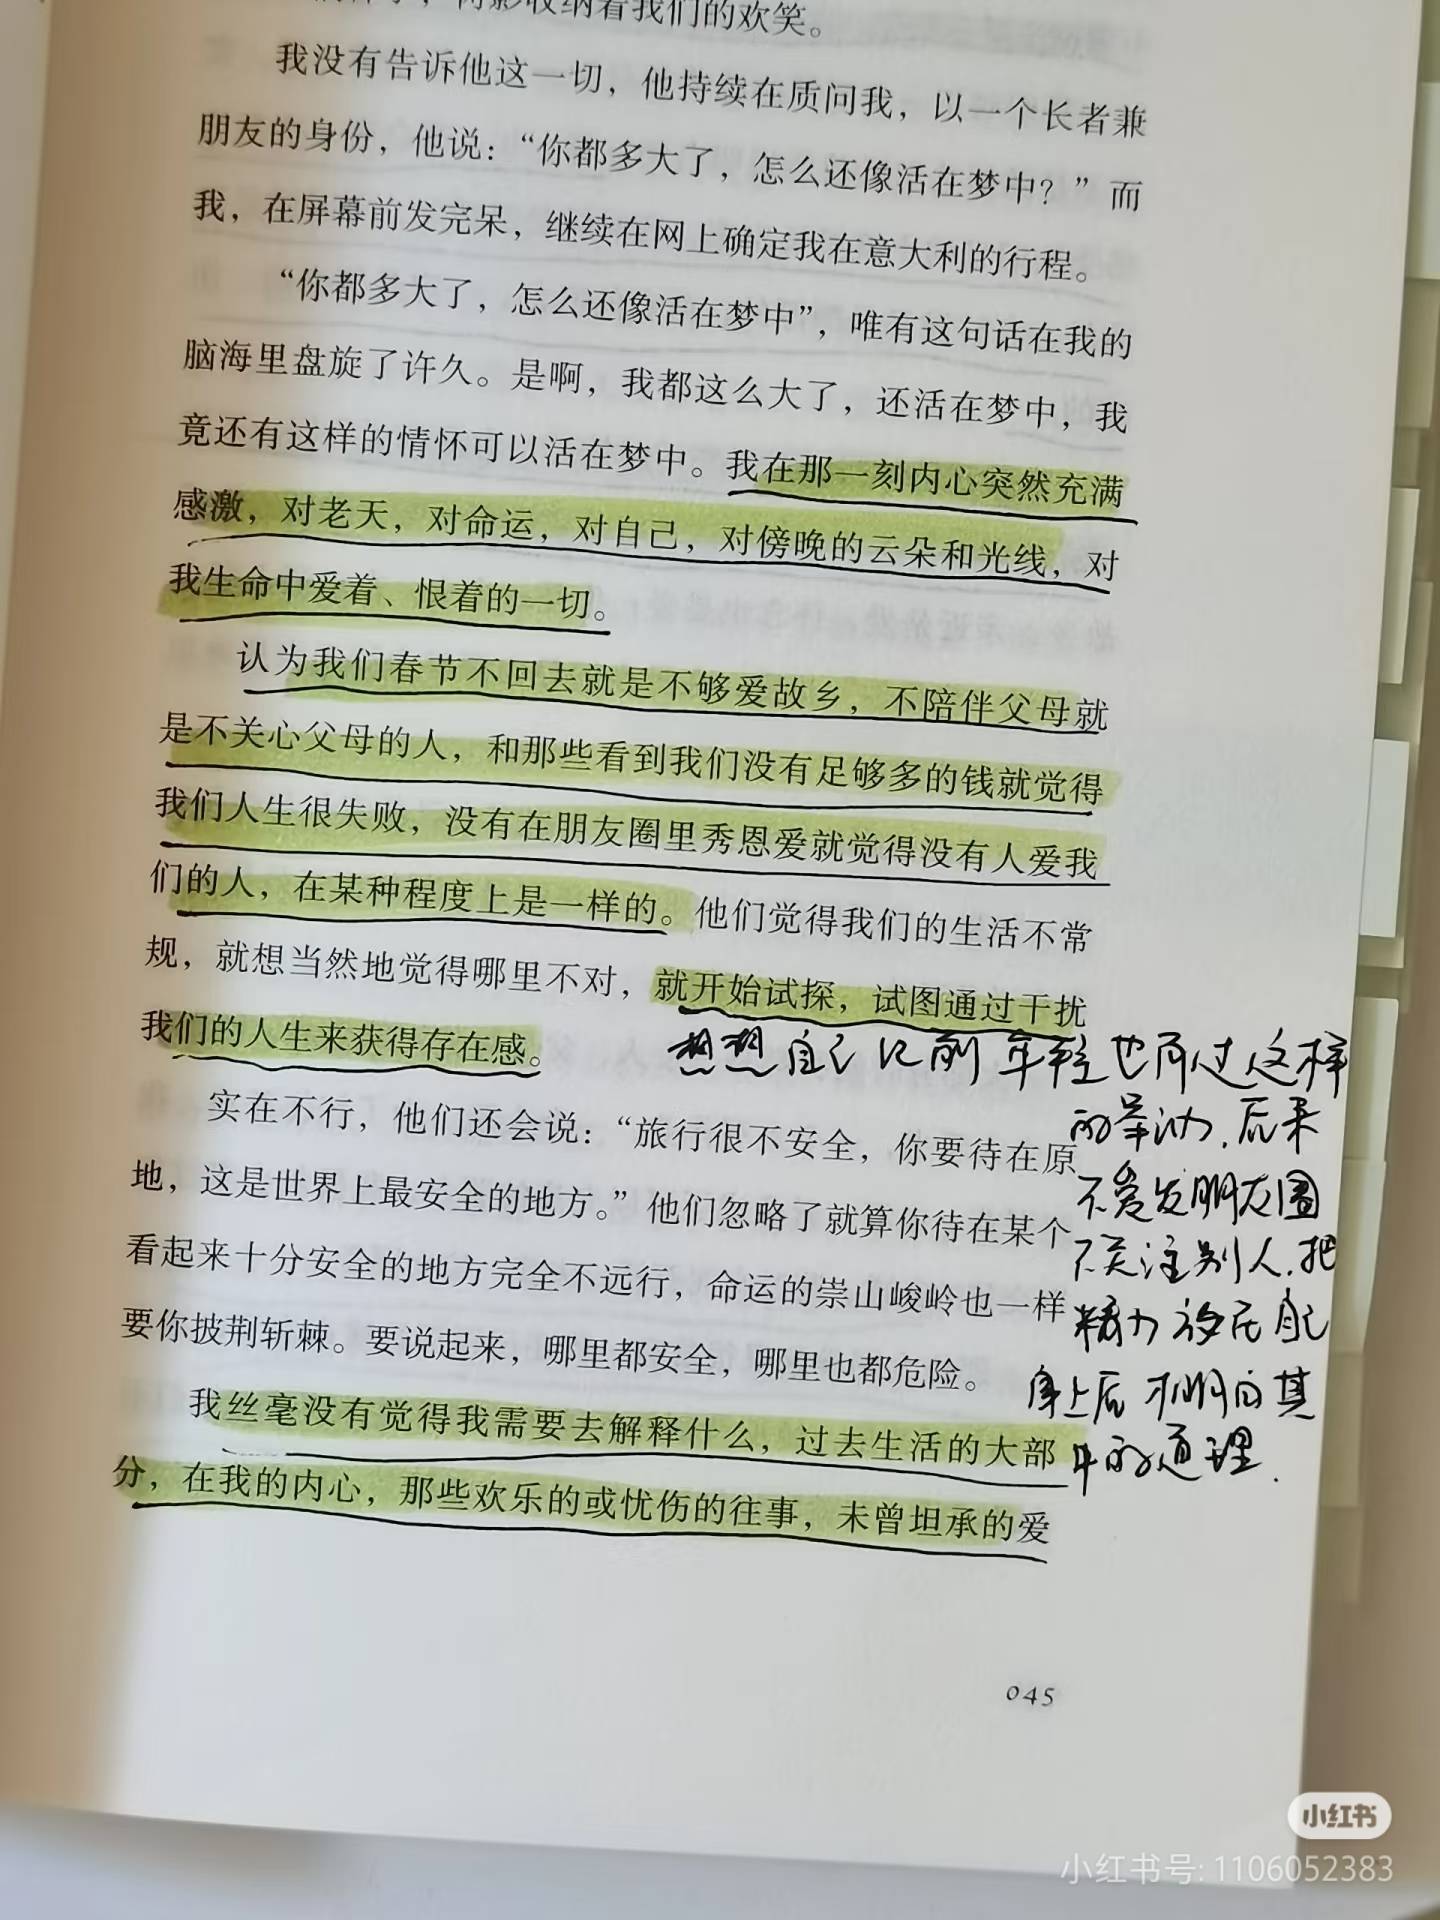 两影收纳着我们的欢笑。
我没有告诉他这一切，他持续在质问我，以一个长者兼
朋友的身份，他说：“你都多大了，怎么还像活在梦中？”而
我，在屏幕前发完呆，继续在网上确定我在意大利的行程。
“你都多大了，怎么还像活在梦中”，唯有这句话在我的
脑海里盘旋了许久。是啊，我都这么大了，还活在梦中，我
竟还有这样的情怀可以活在梦中。我在那一刻内心突然充满
感激，对老天，对命运，对自己，对傍晚的云朵和光线，对
我生命中爱着、恨着的一切。
认为我们春节不回去就是不够爱故乡，不陪伴父母就
是不关心父母的人，和那些看到我们没有足够多的钱就觉得
我们人生很失败，没有在朋友圈里秀恩爱就觉得没有人爱我
们的人，在某种程度上是一样的。他们觉得我们的生活不常
规，就想当然地觉得哪里不对，就开始试探，试图通过干扰
我们的人生来获得存在感。
想想自己以前年轻也有过这样
的举动，后来
不爱发朋友圈
不关注别人，把
精力放在自己
身上后才明白其
中的道理.
实在不行，他们还会说：“旅行很不安全，你要待在原
地，这是世界上最安全的地方。”他们忽略了就算你待在某个
看起来十分安全的地方完全不远行，命运的崇山峻岭也一样
要你披荆斩棘。要说起来，哪里都安全，哪里也都危险。
我丝毫没有觉得我需要去解释什么，过去生活的大部
分，在我的内心，那些欢乐的或忧伤的往事，未曾坦承的爱
045
小红书
小红书号: 1106052383